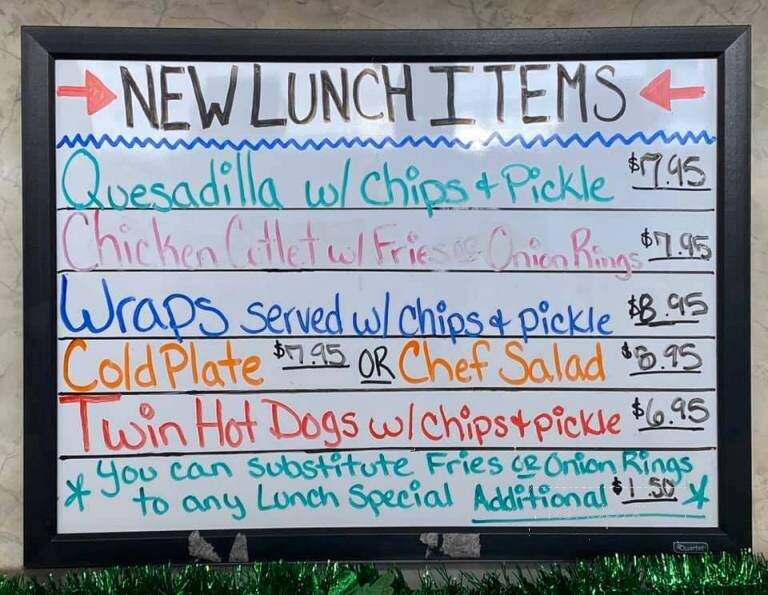 NEW LUNCH ITEMS
Quesadilla w/ Chips + Pickle $7.95
Chicken Cutlet w/ Fries or Onion Rings $7.95
Wraps served w/ chips + pickle $8.95
Cold Plate $7.95 OR Chef Salad $8.95
Twin Hot Dogs w/ chips + pickle $6.95
* You can substitute Fries OR Onion Rings
to any Lunch Special Additional $1.50 *
Quartet